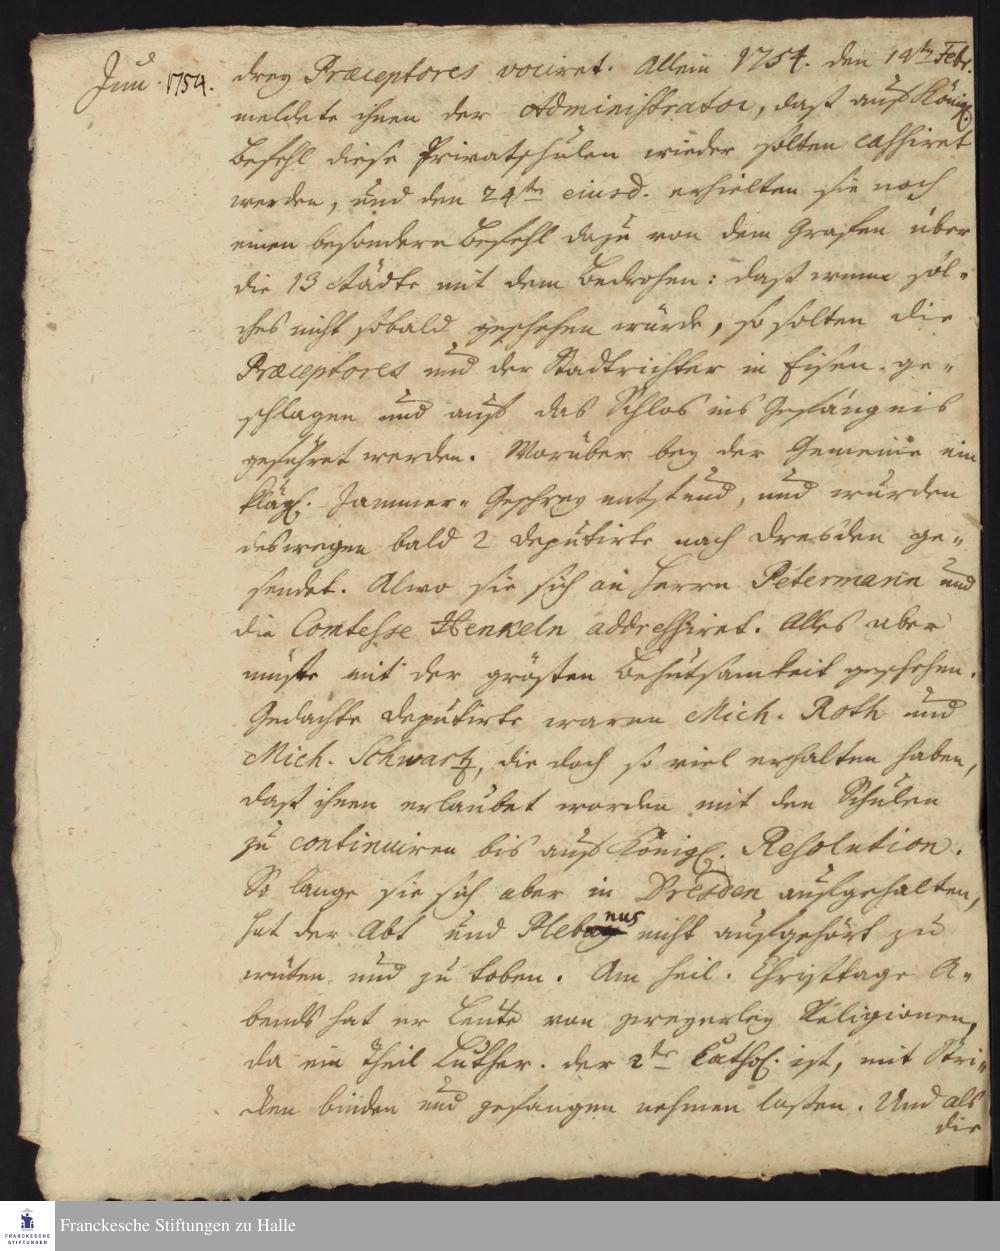 Jun. 1754.
drey Præceptores vociret. Allein 1754. den 14ten Febr.
meldete ihnen der Administrator, daß auf Königl.
Befehl diese Privatschulen wieder solten cassiret
werden, und den 24ten eiusd. erhielten sie noch
einen besondern Befehl dazu von dem Grafen über
die 13 Städte mit dem Bedrohen: daß wenn sol-
ches nicht sobald geschehen würde, so solten die
Præceptores und der Stadtrichter in Eisen ge-
schlagen und auf das Schlos ins Gefängnis
geführet werden. Worüber bey der Gemeine ein
kläg. Jammer- Geschrey entstund, und wurden
deswegen bald 2 Deputirte nach Dresden ge-
sendet. Alwo sie sich an Herrn Petermann und
die Comtesse Henkeln addressiret. Alles aber
muste mit der grösten Behutsamkeit geschehen.
Gedachte Deputirte waren Mich. Roth und
Mich. Schwartz, die doch so viel erhalten haben,
daß ihnen erlaubet worden mit den Schulen
zu continuiren bis auf Königl. Resolution.
So lange sie sich aber in Dresden aufgehalten,
hat der Abt und Plebanus nicht aufgehört zu
wüten und zu toben. Am heil. Christtage A-
bends hat er Leute von zweyerley Religionen,
da ein Theil Luther. der 2te Cathol. ist, mit Stri-
cken binden und gefangen nehmen lassen. Und als
die
FRANCKESCHE
STIFTUNGEN
Franckesche Stiftungen zu Halle